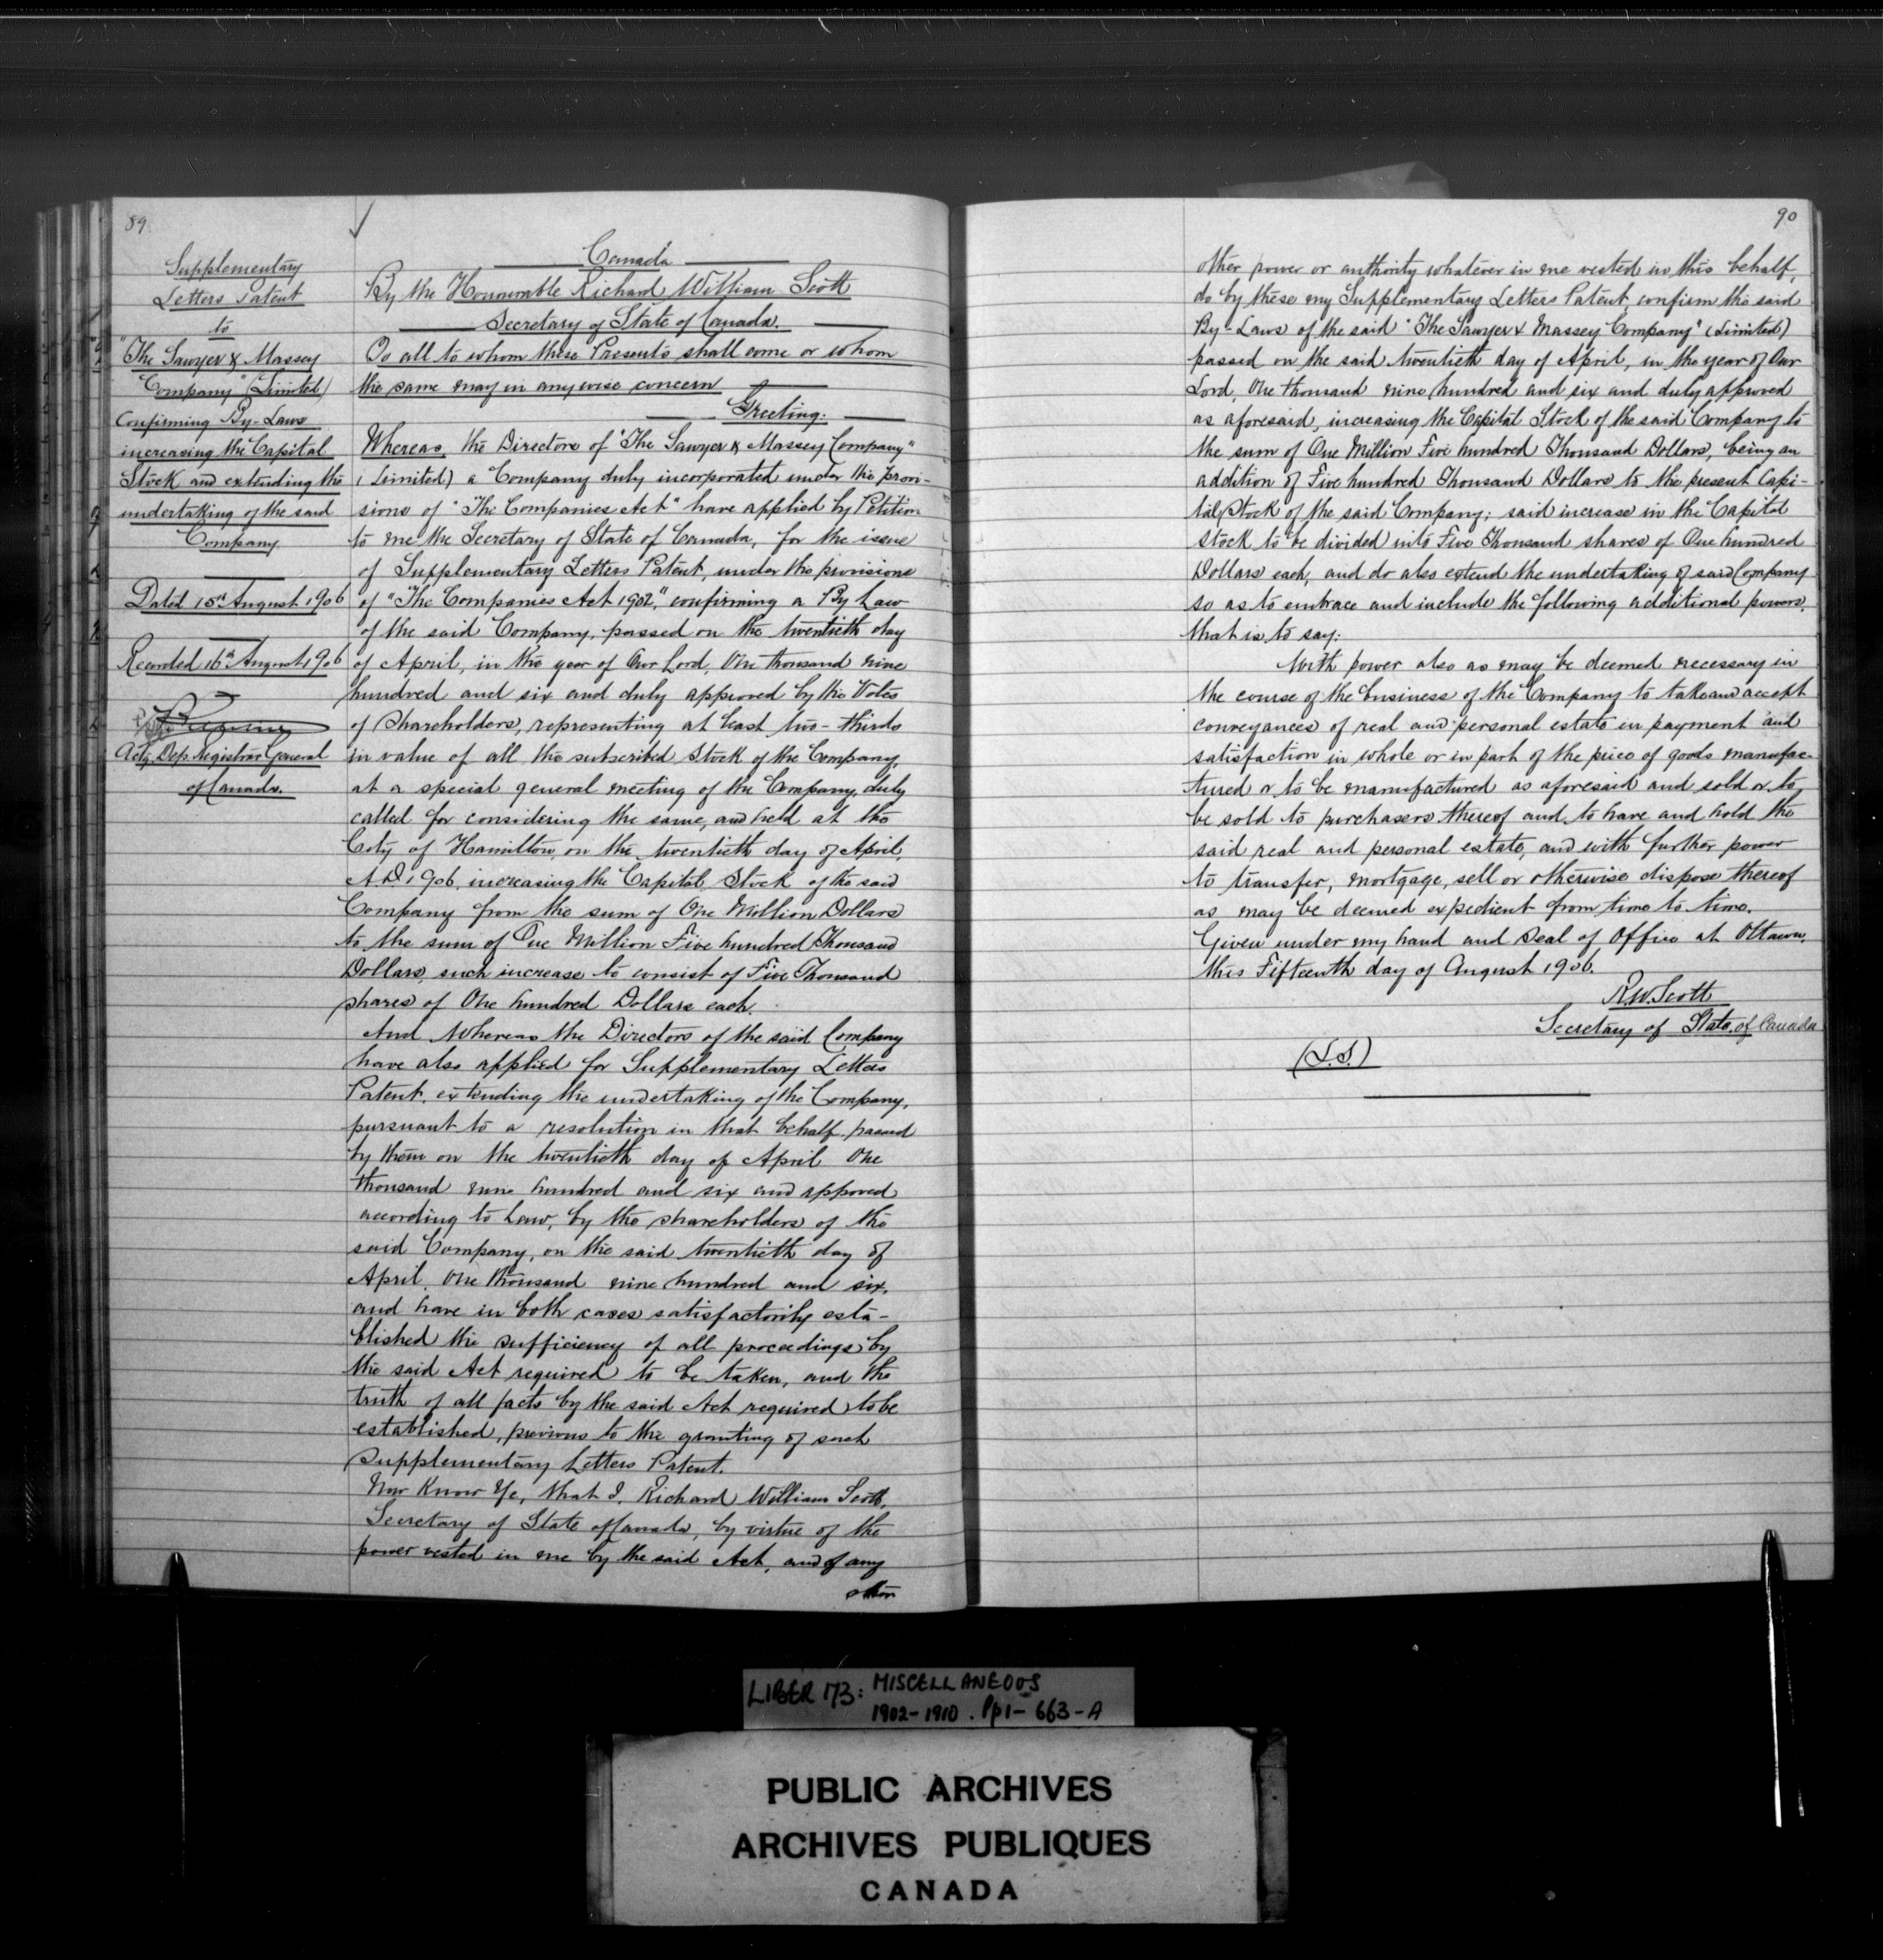 89
Supplementary
Letters Patent
to
"The Sawyer & Massey
Company" (Limited)
Confirming By-Laws
increasing the Capital
Stock and extending the
undertaking of the said
Company.
Dated 15th August 1906
Recorded 16th August 1906
Actg. Dep. Registrar General
of Canada.
Canada
By the Honourable Richard William Scott
Secretary of State of Canada.
To all to whom these Presents shall come or whom
the same may in anywise concern
Greeting:
Whereas, the Directors of "The Sawyer & Massey Company"
(Limited) a Company duly incorporated under the provi-
sions of "The Companies Act" have applied by Petition
to me the Secretary of State of Canada, for the issue
of Supplementary Letters Patent, under the provisions
of "The Companies Act 1902," confirming a By Law
of the said Company, passed on the twentieth day
of April, in the year of Our Lord, One thousand nine
hundred and six and duly approved by the Votes
of Shareholders, representing at least two-thirds
in value of all the subscribed Stock of the Company,
at a special general meeting of the Company, duly
called for considering the same, and held at the
City of Hamilton, on the twentieth day of April,
A.D. 1906, increasing the Capital Stock of the said
Company from the sum of One Million Dollars
to the sum of One Million Five hundred Thousand
Dollars, such increase to consist of Five Thousand
shares of One hundred Dollars each.
And Whereas the Directors of the said Company
have also applied for Supplementary Letters
Patent, extending the undertaking of the Company,
pursuant to a resolution in that behalf passed
by them on the twentieth day of April One
thousand nine hundred and six and approved
according to Law, by the shareholders of the
said Company, on the said twentieth day of
April, One thousand nine hundred and six,
and have in both cases satisfactorily esta-
blished the sufficiency of all proceedings by
the said Act required to be taken, and the
truth of all facts by the said Act required to be
established, previous to the granting of such
Supplementary Letters Patent.
Now Know Ye, that I, Richard William Scott,
Secretary of State of Canada, by virtue of the
power vested in me by the said Act, and of any
other
90
other power or authority whatever in me vested in this behalf,
do by these my Supplementary Letters Patent, confirm the said
By-Laws of the said "The Sawyer & Massey Company" (Limited)
passed on the said twentieth day of April, in the year of Our
Lord, One thousand nine hundred and six and duly approved
as aforesaid, increasing the Capital Stock of the said Company to
the sum of One Million Five hundred Thousand Dollars, being an
addition of Five hundred Thousand Dollars to the present Capi-
tal Stock of the said Company; said increase in the Capital
stock to be divided into Five Thousand shares of One hundred
Dollars each, and do also extend the undertaking of said Company
so as to embrace and include the following additional powers,
that is to say:
With power also as may be deemed necessary in
the course of the business of the Company to take and accept
conveyances of real and personal estate in payment and
satisfaction in whole or in part of the price of goods manufac-
tured or to be manufactured as aforesaid and sold or to
be sold to purchasers thereof and to have and hold the
said real and personal estate, and with further power
to transfer, mortgage, sell or otherwise dispose thereof
as may be deemed expedient from time to time.
Given under my hand and Seal of Office at Ottawa,
this Fifteenth day of August 1906.
R.W. Scott
Secretary of State of Canada
(L.S.)
LIBER 173: MISCELLANEOUS
1902-1910. Pp 1-663-A
PUBLIC ARCHIVES
ARCHIVES PUBLIQUES
CANADA